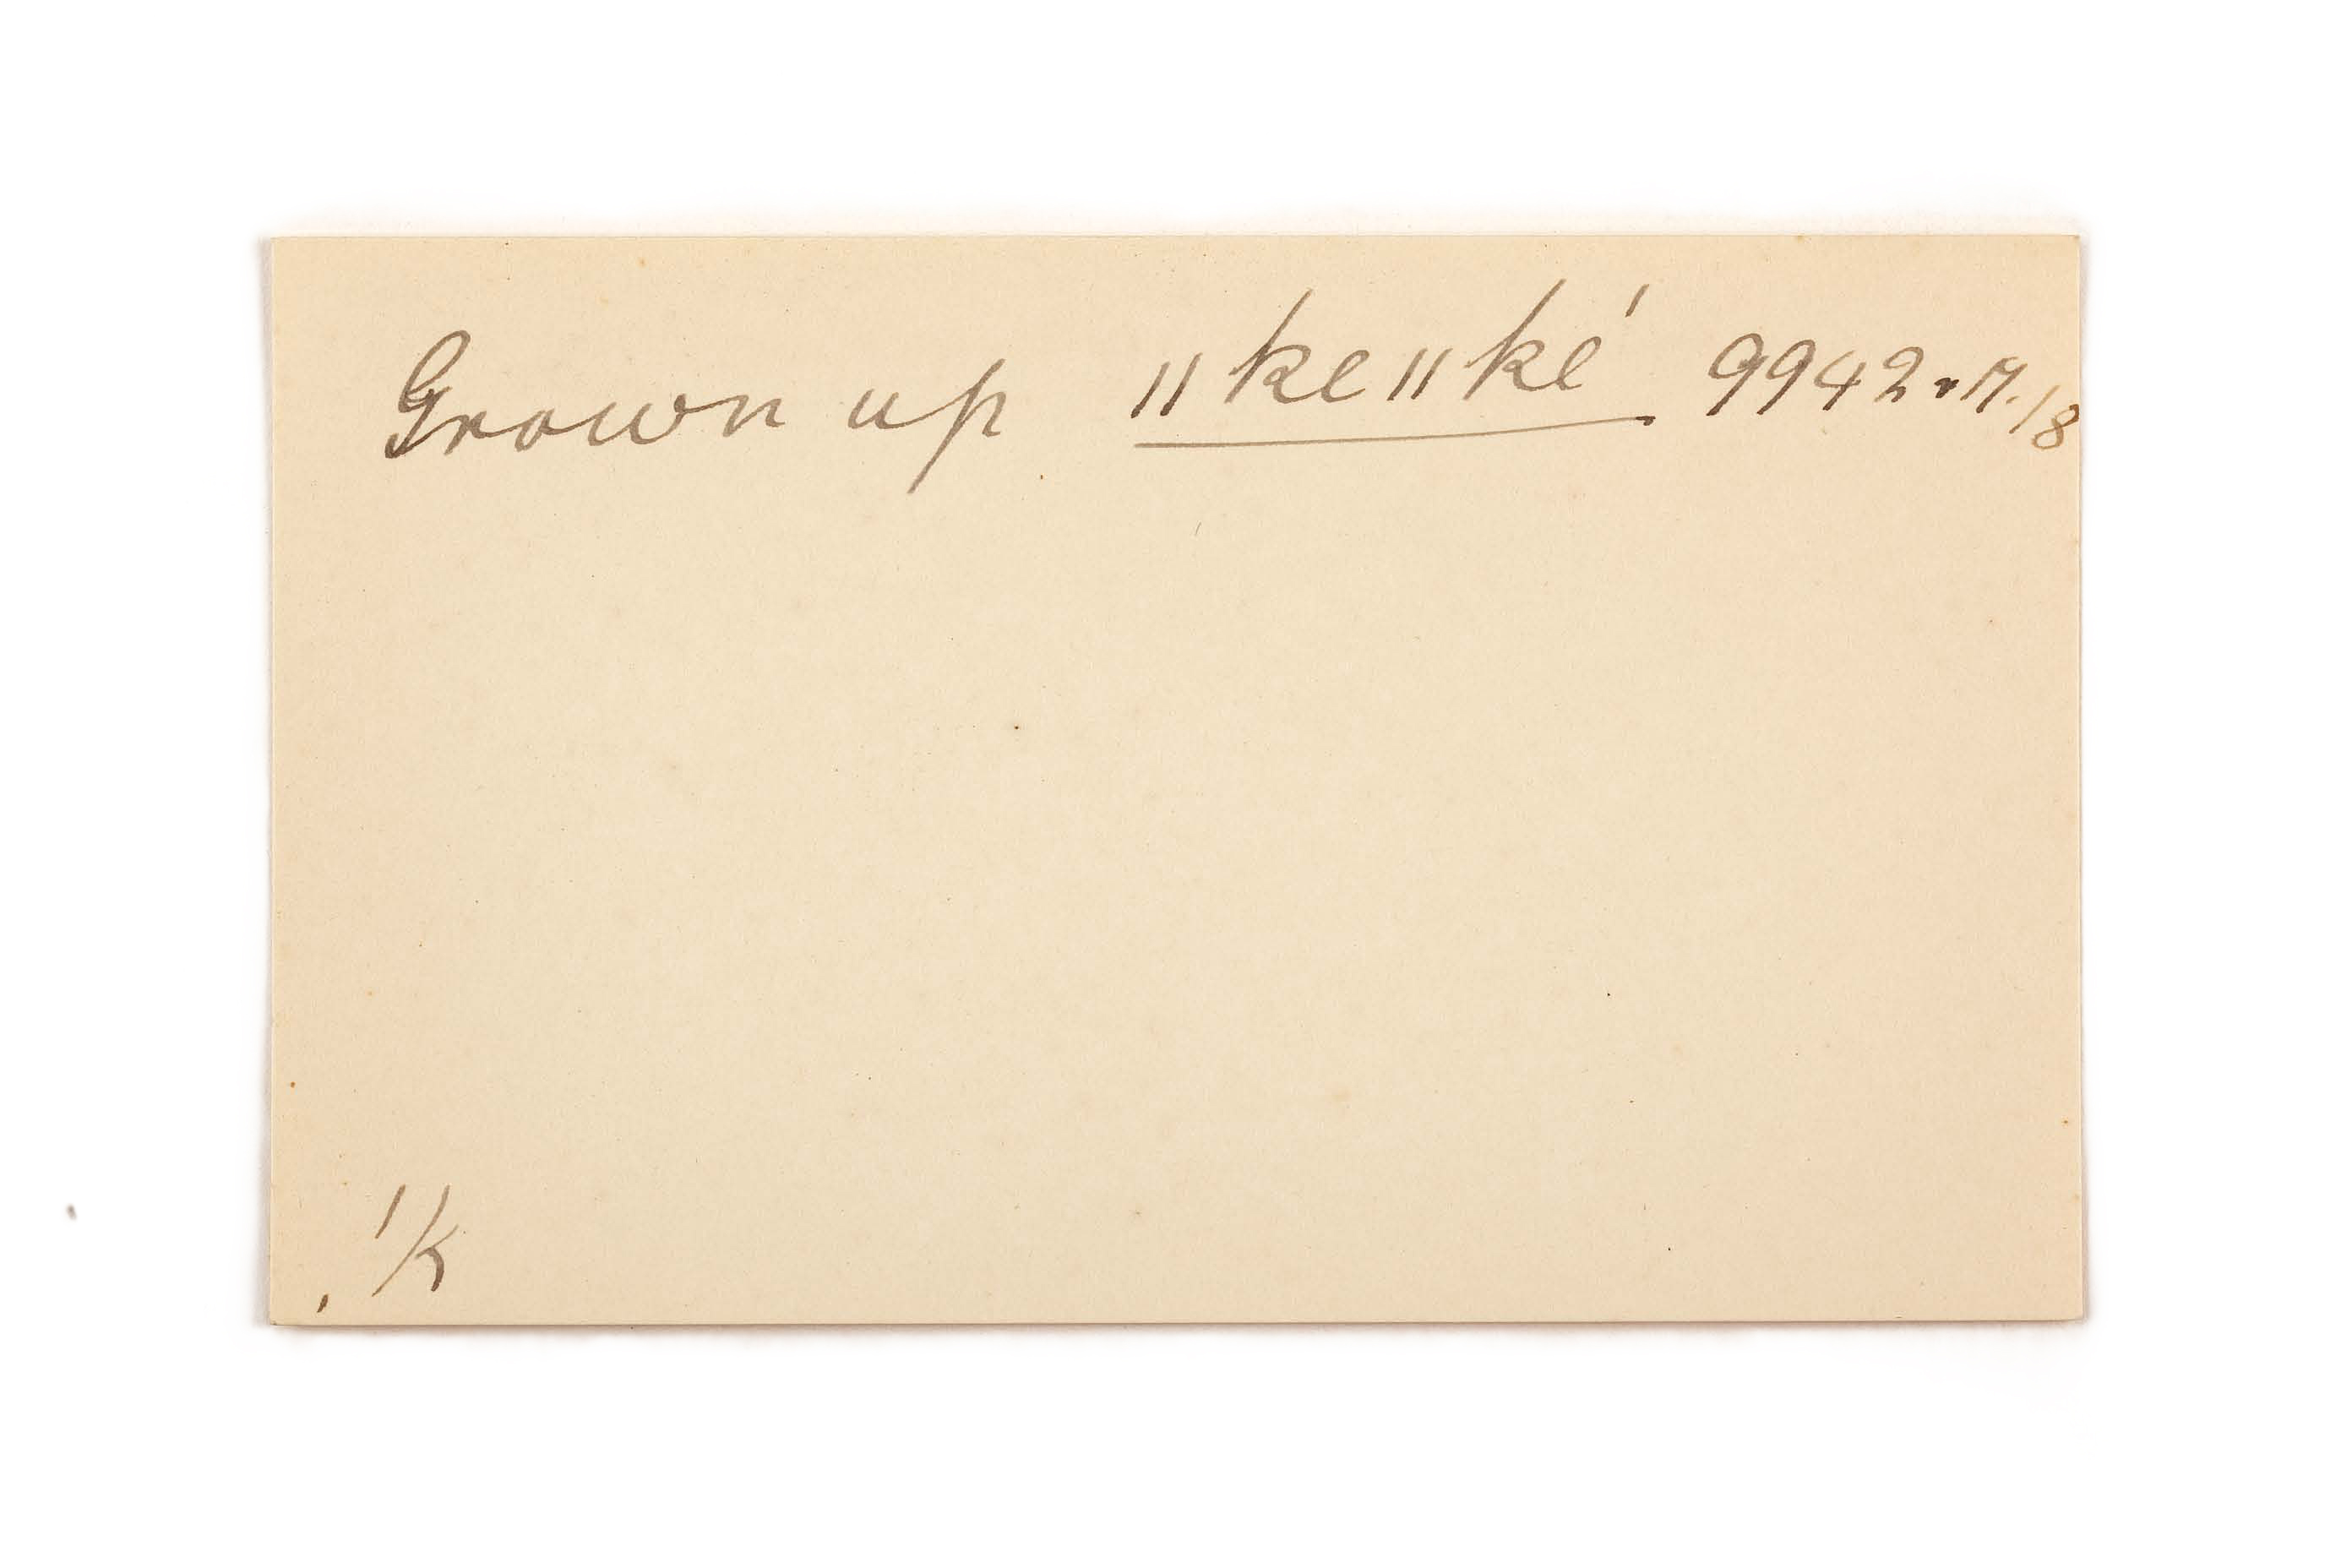 Grown up ǁkeǁké 9942.17./18
ǀK